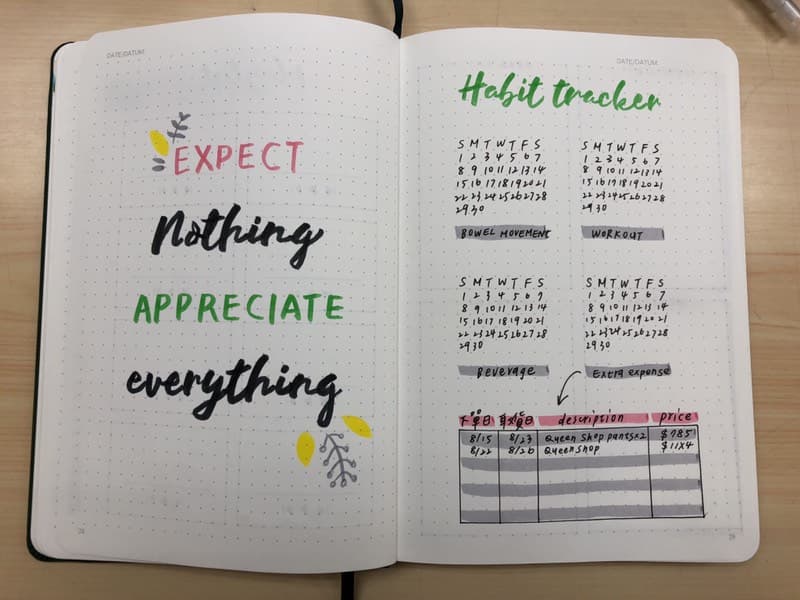 DATE/DATUM:
EXPECT
Nothing
APPRECIATE
everything
28
DATE/DATUM:
Habit tracker
S M T W T F S
1 2 3 4 5 6 7
8 9 10 11 12 13 14
15 16 17 18 19 20 21
22 23 24 25 26 27 28
29 30
BOWEL MOVEMENT
S M T W T F S
1 2 3 4 5 6 7
8 9 10 11 12 13 14
15 16 17 18 19 20 21
22 23 24 25 26 27 28
29 30
WORKOUT
S M T W T F S
1 2 3 4 5 6 7
8 9 10 11 12 13 14
15 16 17 18 19 20 21
22 23 24 25 26 27 28
29 30
Beverage
S M T W T F S
1 2 3 4 5 6 7
8 9 10 11 12 13 14
15 16 17 18 19 20 21
22 23 24 25 26 27 28
29 30
Extra expense
下單日 取貨日 description price
8/15 8/23 Queen Shop pants×2 $785
8/22 8/26 Queen Shop
29